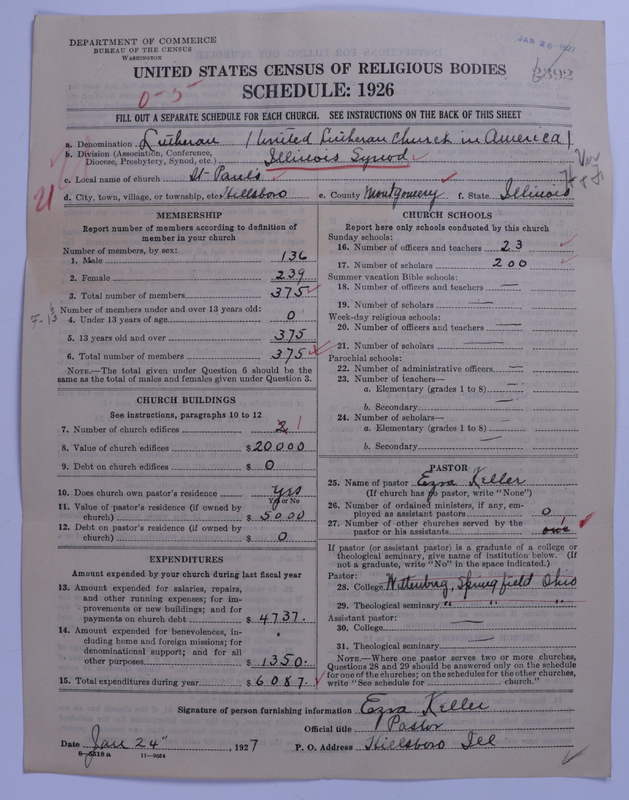 DEPARTMENT OF COMMERCE
BUREAU OF THE CENSUS
WASHINGTON
JAN 26 1927
UNITED STATES CENSUS OF RELIGIOUS BODIES
SCHEDULE: 1926
0-5
FILL OUT A SEPARATE SCHEDULE FOR EACH CHURCH. SEE INSTRUCTIONS ON THE BACK OF THIS SHEET
a. Denomination Lutheran (United Lutheran Church in America)
b. Division (Association, Conference, Diocese, Presbytery, Synod, etc.) Illinois Synod
c. Local name of church St Paul's
d. City, town, village, or township, etc. Hillsboro e. County Montgomery f. State Illinois
MEMBERSHIP
Report number of members according to definition of
member in your church
Number of members, by sex:
1. Male 136
2. Female 239
3. Total number of members 375
Number of members under and over 13 years old:
4. Under 13 years of age 0
5. 13 years old and over 375
6. Total number of members 375
NOTE.—The total given under Question 6 should be the
same as the total of males and females given under Question 3.
CHURCH BUILDINGS
See instructions, paragraphs 10 to 12
7. Number of church edifices 2 1
8. Value of church edifices $20000
9. Debt on church edifices $ 0
10. Does church own pastor's residence yes
Yes or No
11. Value of pastor's residence (if owned by
church) $ 5000
12. Debt on pastor's residence (if owned by
church) $ 0
EXPENDITURES
Amount expended by your church during last fiscal year
13. Amount expended for salaries, repairs,
and other running expenses; for im-
provements or new buildings; and for
payments on church debt $ 4737.
14. Amount expended for benevolences, in-
cluding home and foreign missions; for
denominational support; and for all
other purposes $ 1350.
15. Total expenditures during year $ 6087.
CHURCH SCHOOLS
Report here only schools conducted by this church
Sunday schools:
16. Number of officers and teachers 23
17. Number of scholars 200
Summer vacation Bible schools:
18. Number of officers and teachers —
19. Number of scholars —
Week-day religious schools:
20. Number of officers and teachers —
21. Number of scholars —
Parochial schools:
22. Number of administrative officers —
23. Number of teachers—
a. Elementary (grades 1 to 8) —
b. Secondary —
24. Number of scholars—
a. Elementary (grades 1 to 8) —
b. Secondary —
PASTOR
25. Name of pastor Ezra Keller
(If church has no pastor, write "None")
26. Number of ordained ministers, if any, em-
ployed as assistant pastors 0
27. Number of other churches served by the
pastor or his assistants one 1
If pastor (or assistant pastor) is a graduate of a college or
theological seminary, give name of institution below. (If
not a graduate, write "No" in the space indicated.)
Pastor:
28. College Wittenberg, Springfield Ohio
29. Theological seminary " " "
Assistant pastor:
30. College —
31. Theological seminary —
NOTE.—Where one pastor serves two or more churches,
Questions 28 and 29 should be answered only on the schedule
for one of the churches; on the schedules for the other churches,
write "See schedule for church."
Signature of person furnishing information Ezra Keller
Official title Pastor
Date Jan 24", 1927 P. O. Address Hillsboro Ill
8-5518 a 11-9054